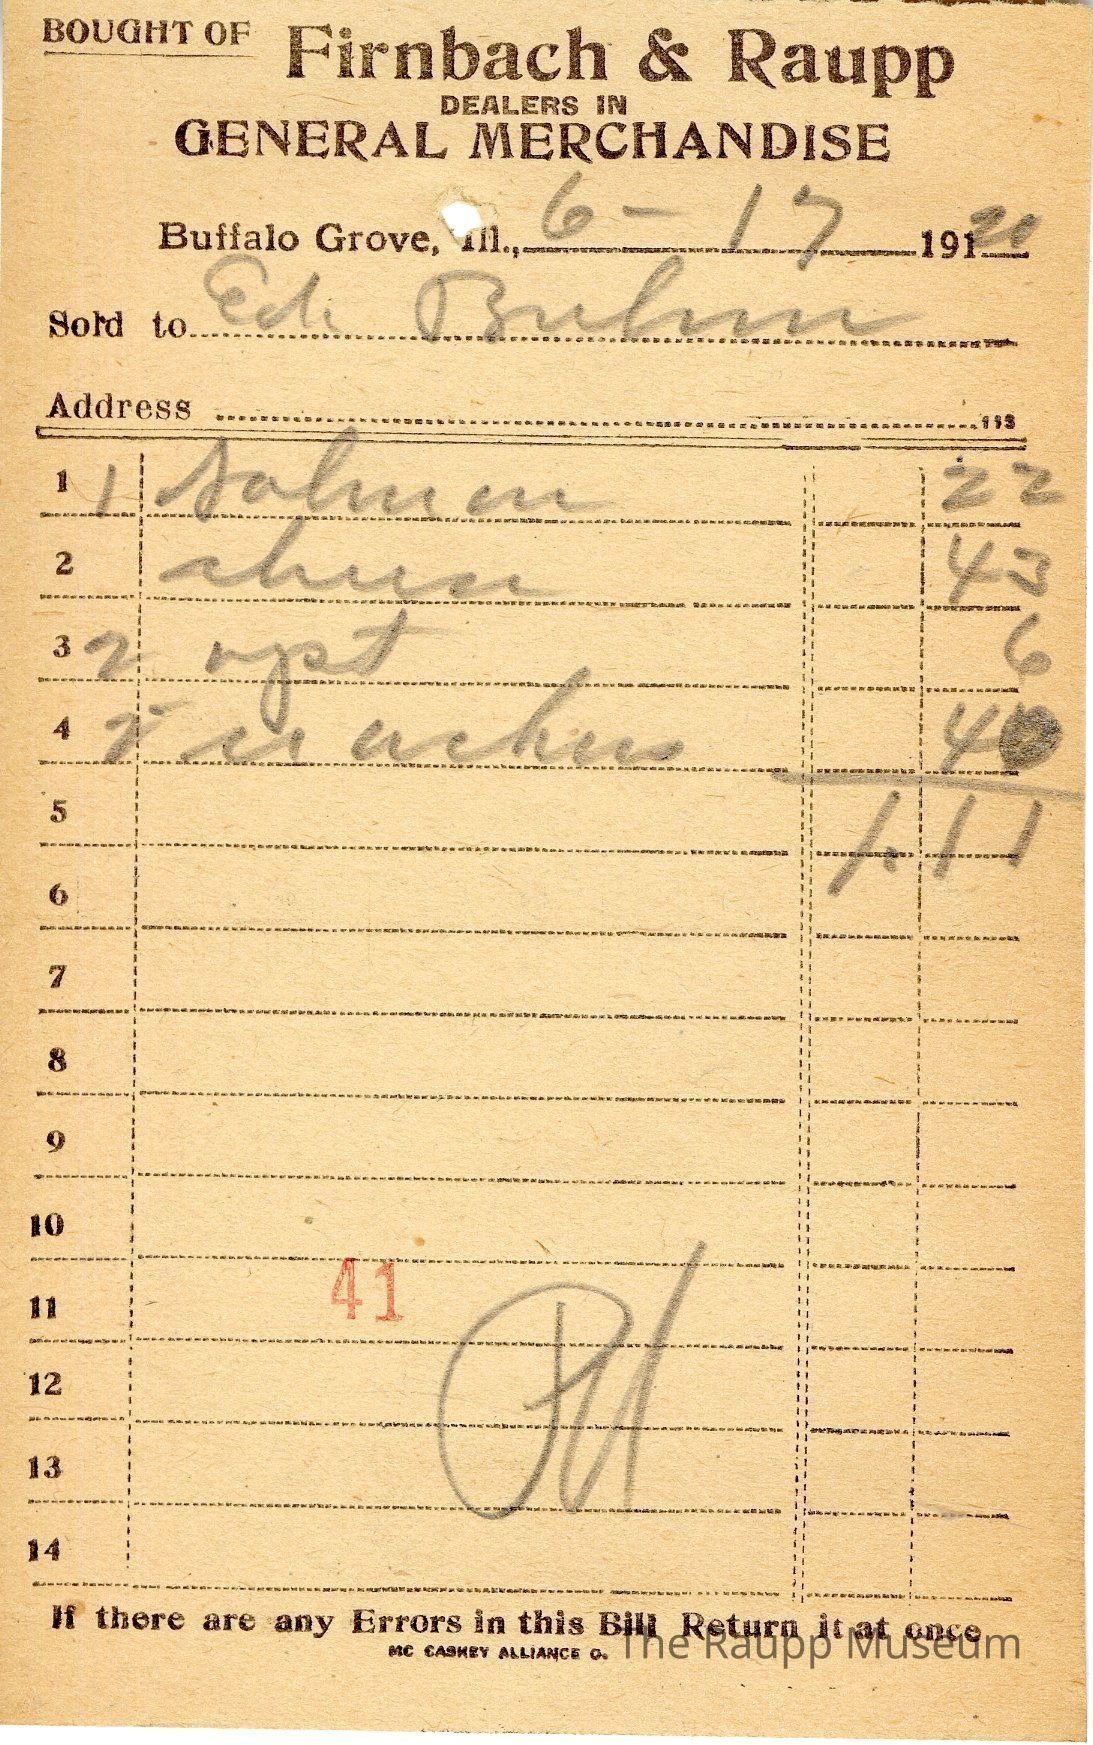 BOUGHT OF Firnbach & Raupp
DEALERS IN
GENERAL MERCHANDISE
Buffalo Grove, Ill., 6 - 17 191 20
Sold to Ed. Buhm
Address 113
1 1 Salmon 22
2 43
3 2 6
4 2 40
5 1.11
6
7
8
9
10
11 41
12
13
14
If there are any Errors in this Bill Return it at once
MC CASKEY ALLIANCE O.
The Raupp Museum